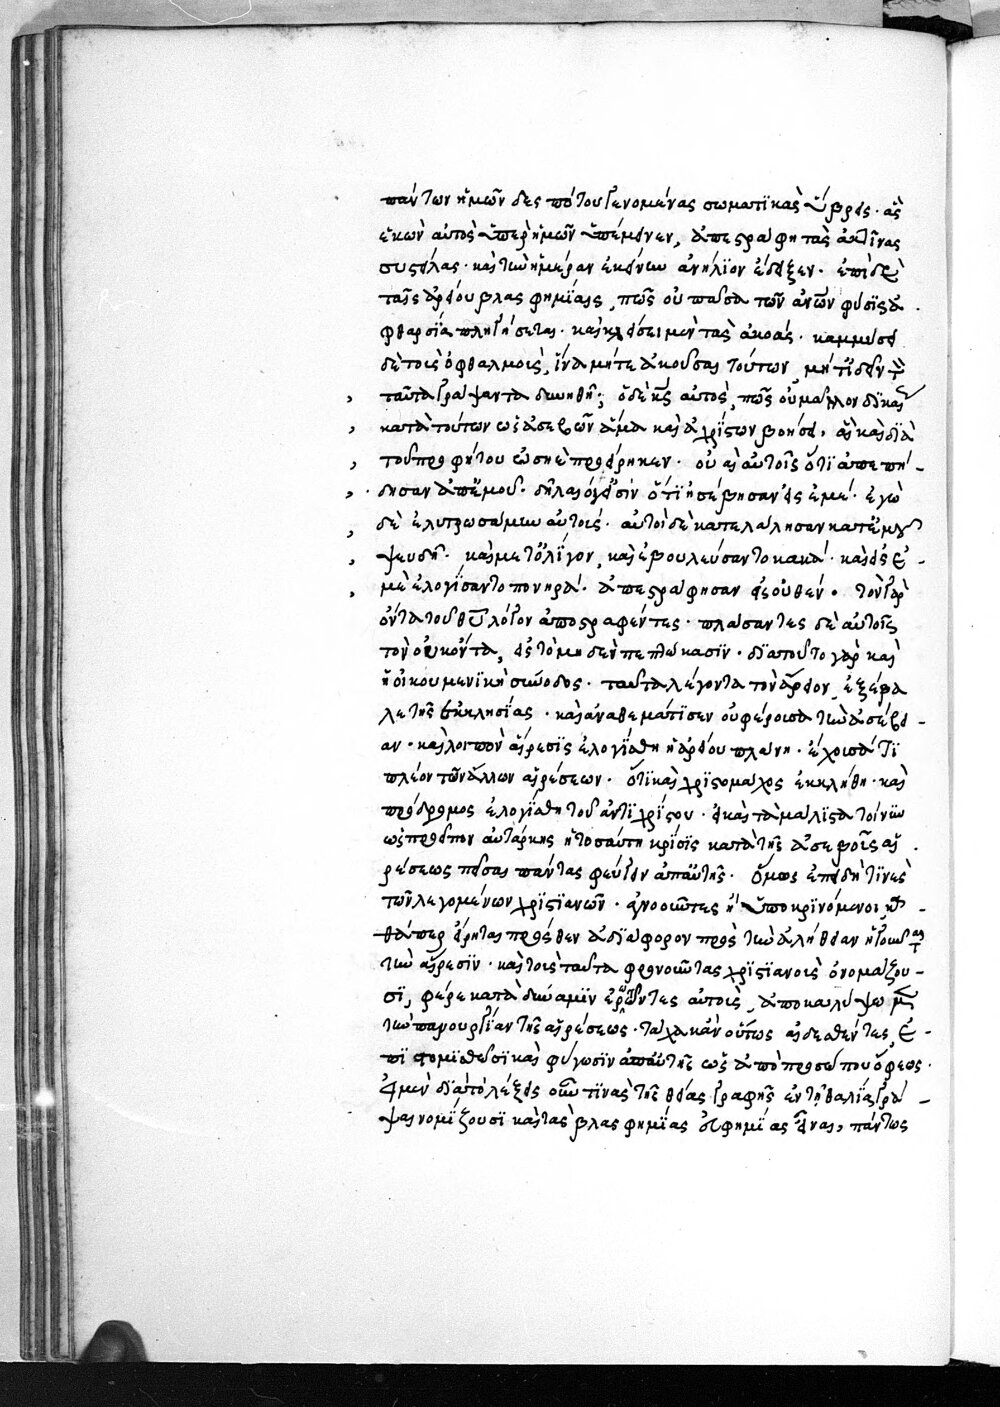 πάντων ἡμῶν δεσπότου γενομένας σωματικὰς ὕβρεις· ἃς
ἑκὼν αὐτὸς ὑπὲρ ἡμῶν ὑπέμεινεν, ἀπεστράφη τὰς ἀκτῖνας
συστείλας· καὶ τὴν ἡμέραν ἐκείνην ἀνήλιον ἔδειξεν· ἐπὶ δὲ
ταῖς ἀρείου βλασφημίαις, πῶς οὐ πᾶσα τῶν ἀνων φύσις ἀ
φθασίᾳ πληγήσεται· καὶ κλείσει μὲν τὰς ἀκοάς· καμμύσει
δὲ τοὺς ὀφθαλμοὺς, ἵνα μήτε ἀκοῦσαι τούτων, μήτε ἰδεῖν τὸν
ταῦτα γράψαντα δυνηθῇ; ὁ δὲ κς αὐτὸς, πῶς οὐ μᾶλλον δικαί
κατὰ τούτων ὡς ἀσεβῶν ἅμα καὶ ἀχρίστων βοήσει, ἃ καὶ διὰ
τοῦ προφήτου ὡσηὲ προείρηκεν· οὐαὶ αὐτοῖς ὅτι ἀπεπή
δησαν ἀπ' ἐμοῦ· δήλαιοί εἰσὶν ὅτι ἠσέβησαν εἰς ἐμέ· ἐγὼ
δὲ ἐλυτρωσάμην αὐτούς· αὐτοὶ δὲ κατελάλησαν κατ' ἐμοῦ
ψευδῆ· καὶ μετ' ὀλίγον, καὶ ἐβουλεύσαντο κακά· καὶ εἰς ἐ
μὲ ἐλογίσαντο πονηρά· ἀπεστράφησαν εἰς οὐθέν· τὸν γὰρ
ὄντα τοῦ θυ λόγον ἀποστραφέντες· πλάσαντες δὲ αὐτοῖς
τὸν οὐκ ὄντα, εἰς τὸ μηδὲν πεπτώκασιν· διὰ τοῦτο γὰρ καὶ
ἡ οἰκουμενικὴ σύνοδος· ταῦτα λέγοντα τὸν ἄρειον, ἐξέβα
λε τῆς ἐκκλησίας· καὶ ἀναθεμάτισεν οὐ φέρουσα τὴν ἀσέβει
αν· καὶ λοιπὸν αἵρεσις ἐλογίσθη ἡ ἀρείου πλάνη· ἔχουσά τι
πλέον τῶν ἄλλων αἱρέσεων· ὅτι καὶ χριστομάχος ἐκκλήθη· καὶ
πρόδρομος ἐλογίσθη τοῦ ἀντιχρίστου· εἰ καὶ τὰ μάλιστα τοίνυν
ὡς προεῖπον αὐτάρκης ἡ τοσαύτη κρίσις κατὰ τῆς ἀσεβοῦς αἱ
ρέσεως πεῖσαι πάντας φεύγειν ἀπ' αὐτῆς· ὅμως ἐπειδή τινες
τῶν λεγομένων χριστιανῶν· ἀγνοοῦντες ἢ ὑποκρινόμενοι κα
θάπερ εἴρηται πρόσθεν ἀδιάφορον πρὸς τὴν ἀλήθειαν ἡγοῦνται
τὴν αἵρεσιν· καὶ τοὺς ταῦτα φρονοῦντας χριστιανοὺς ὀνομάζου
σι, φέρε κατὰ δύναμιν ἐρωτῶντες αὐτοὺς, ἀποκαλύψωμεν
τὴν πανουργίαν τῆς αἱρέσεως· τάχα κἂν οὕτως αἰδεσθέντες, ἐ
πιστομισθῶσι καὶ φύγωσιν ἀπ' αὐτῆς ὡς ἀπὸ προσώπου ὄφεως·
εἰ μὲν διὰ τὸ λέξεις οὖν τινὰς τῆς θείας γραφῆς ἐν τῇ θαλίᾳ γρά
ψαι νομίζουσι καὶ τὰς βλασφημίας εὐφημίας εἶναι, πάντως